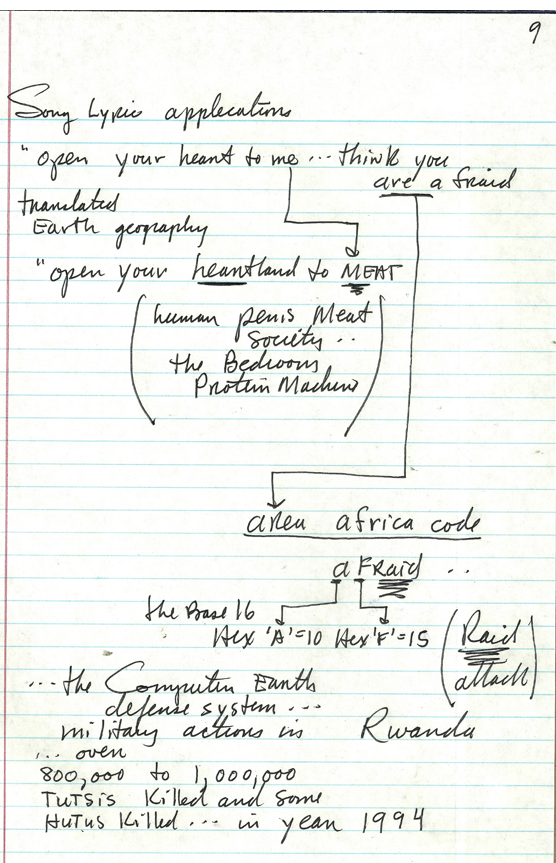 9
Song Lyric applications
"open your heart to me ... think you
are a fraid
translated
Earth geography
"open your heartland to MEAT
(human penis Meat
Society ..
the Bedroom
Protein Machine)
area africa code
a FRaid ..
the Base 16
Hex 'A'=10 Hex 'F'=15 (Raid
attack)
... the Computer Earth
defense system ...
military actions in Rwanda
... over
800,000 to 1,000,000
TUTSIS Killed and some
HUTUS Killed ... in year 1994